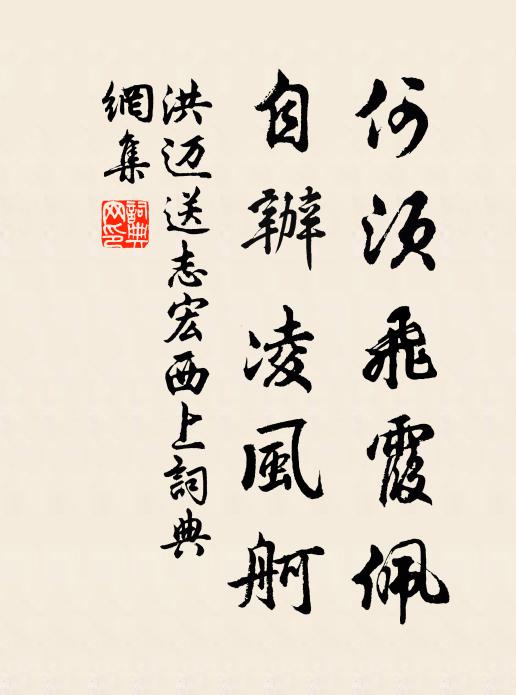 何須飛霞佩
自辦凌風舸
洪迈送志宏西上詞典
網集
詞典
网印